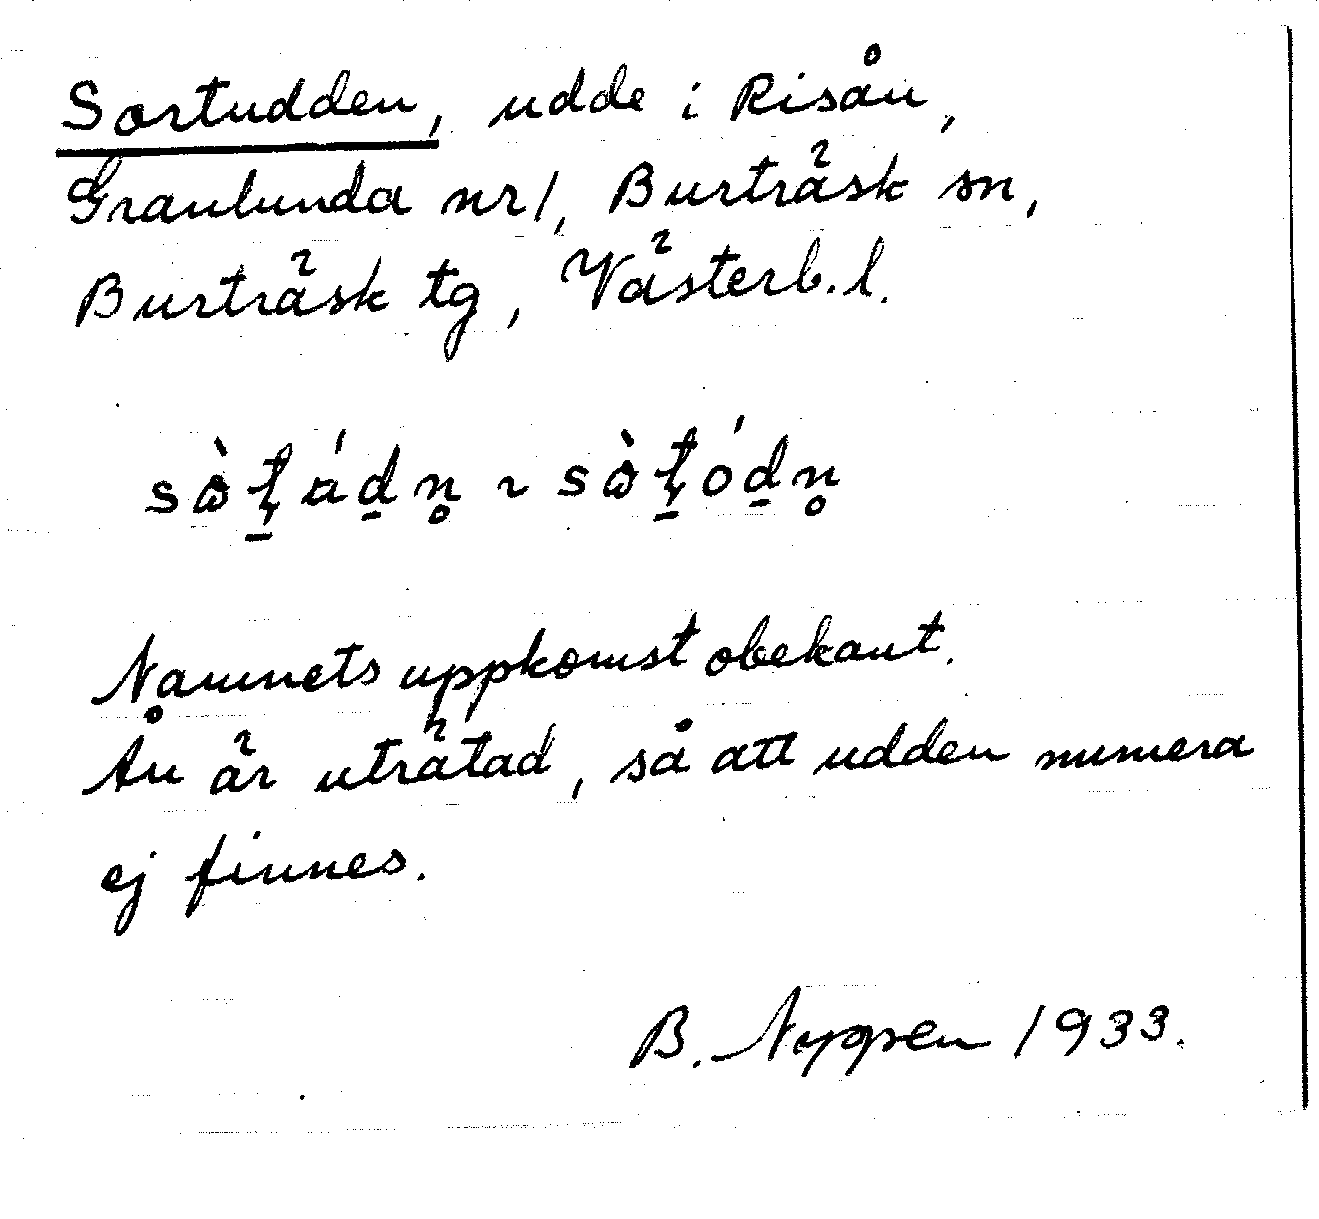 Sortudden, udde i Risån,
Granlunda nr 1, Burträsk sn,
Burträsk tg, Västerb. l.
Namnets uppkomst obekant.
Ån är uträtad, så att udden numera
ej finnes.
B. Nygren 1933.